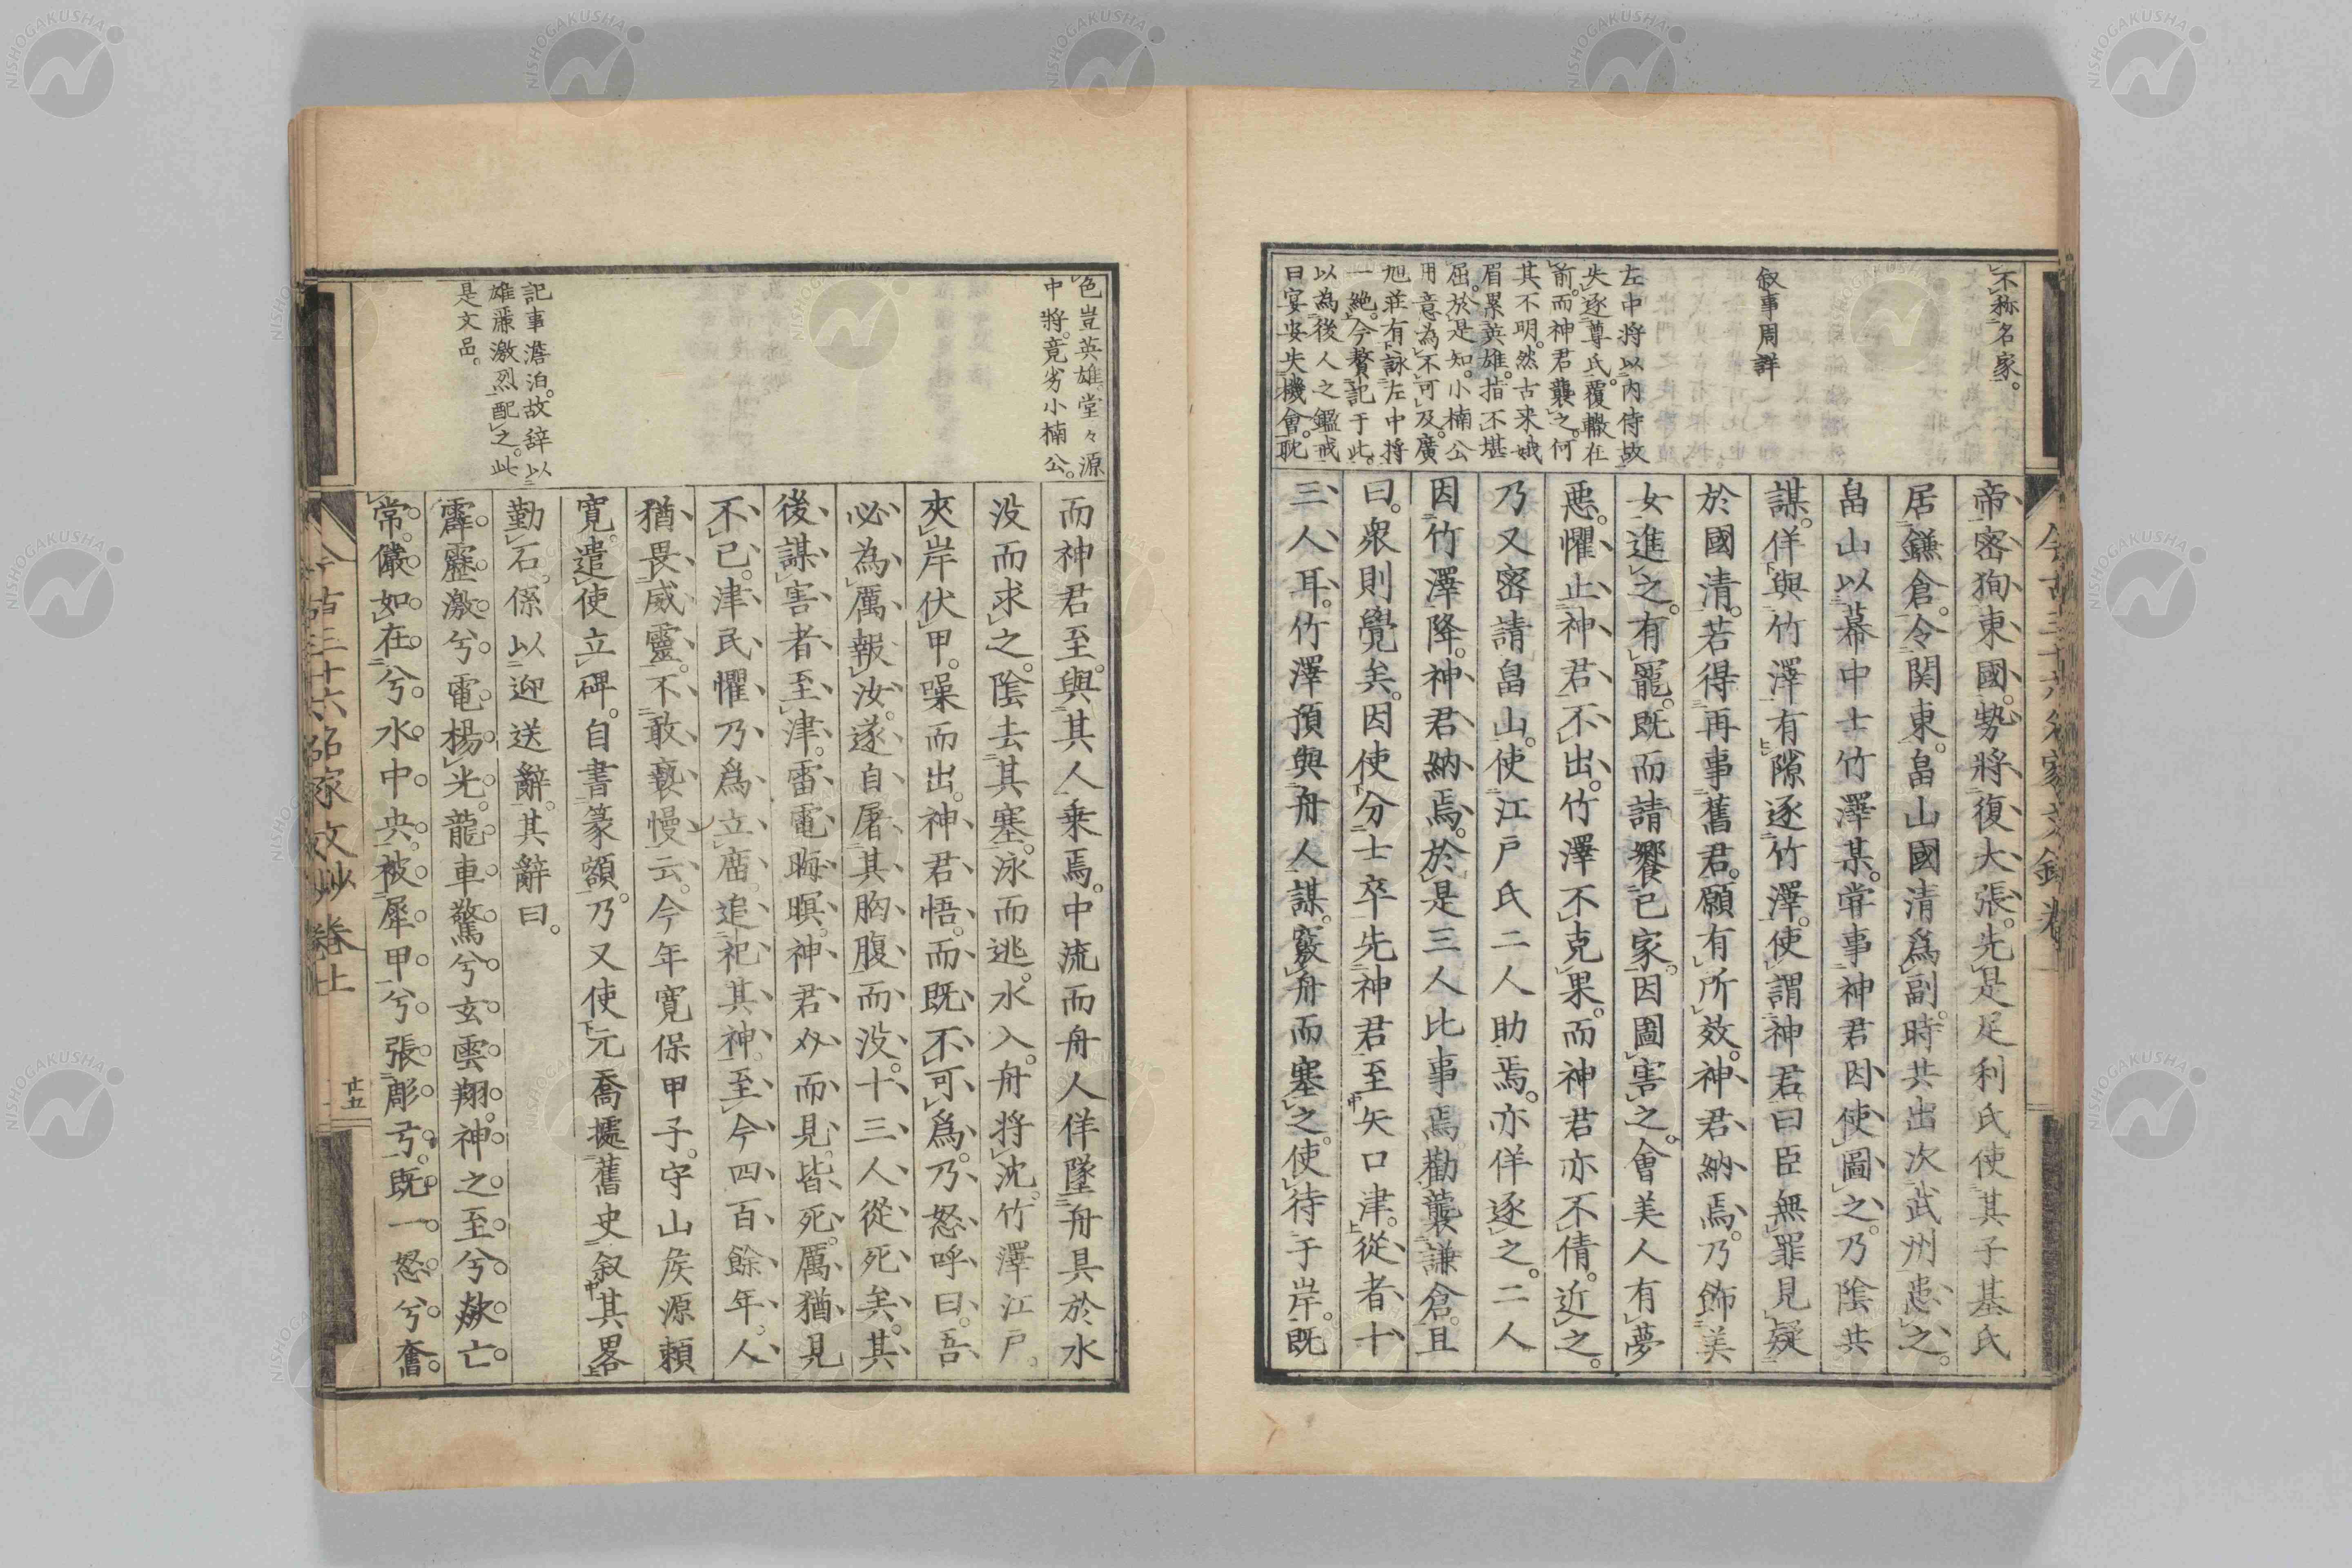 不称名家。
叙事周詳
左中将以内侍故
失逐尊氏。覆轍在
前。而神君襲之。何
其不明。然古来娥
眉累英雄。指不堪
屈。於是知。小楠公
用意為不可及。廣
旭荘有詠左中将
一絶。今贅記于此。
以為後人之鑑戒
曰。宴安失機會。耽
帝、密狥東國。勢將復大張。先是足利氏使其子基氏
居鎌倉。令関東。畠山國清爲副。時共出次武州患之。
畠山以幕中士竹澤某。甞事神君因使圖之。乃陰共
謀。佯與竹澤有隙逐竹澤。使謂神君曰臣無罪見疑
於國清。若得再事舊君。願有所效。神君納焉。乃飾美
女進之。有寵。既而請饗已家。因圖害之。會美人有夢
惡。懼止神君不出。竹澤不克果。而神君亦不倩近之。
乃又密請畠山。使江戸氏二人助焉。亦佯逐之。二人
因竹澤降。神君納焉。於是三人比事焉勸襲鎌倉。且
曰。衆則覺矣。因使分士卒先神君至矢口津。從者十
三人耳。竹澤預與舟人謀。竅舟而塞之。使待于岸。既
今古三十六名家文鈔卷上
色豈英雄。堂々源
中將。竟劣小楠公。
記事澹泊。故辞以
雄深激烈配之。此
是文品。
而神君至。與其人乗焉。中流而舟人佯墜舟具於水
没而求之。陰去其塞。泳而逃。水入。舟將沈。竹澤江戸。
夾岸伏甲。噪而出。神君悟。而既不可爲。乃怒呼曰。吾
必為厲報汝。遂自屠其胸腹而没。十三人從死矣。其
後謀害者至津。雷電晦暝。神君仌而見。皆死。厲猶見
不已。津民懼乃爲立廟追祀其神。至今四百餘年。人
猶畏威靈。不敢褻慢云。今年寛保甲子。守山矦源頼
寛。遣使立碑。自書篆額。乃又使元喬據舊史叙其畧
勤石。係以迎送辭。其辭曰。
霹靂激兮電楊光。龍車驚兮玄雲翔。神之至兮歘亡
常。儼如在兮水中央。被犀甲兮張彫弓。既一怒兮奮
今古三十六名家文鈔卷上
廿五
NISHOGAKUSHA